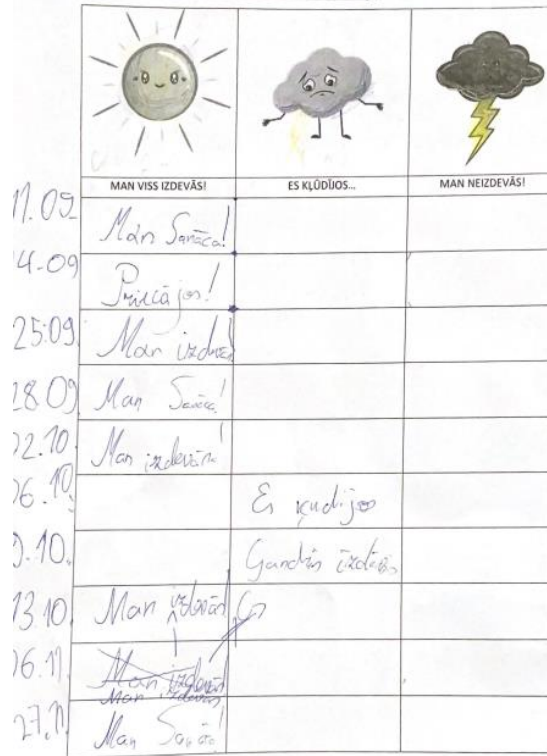 MAN VISS IZDEVĀS! ES KĻŪDĪJOS... MAN NEIZDEVĀS!
11.09 Man Sanāca!
4.09 Priecājos!
25.09 Man izdevās
28.09 Man Sanāca!
02.10. Man izdevās!
06.10. Es kudijos
0.10. Gandrīs izdevās
13.10. Man izdevās!
16.11. Man izdevās!
Man izdevās
27.11 Man Sanāca!